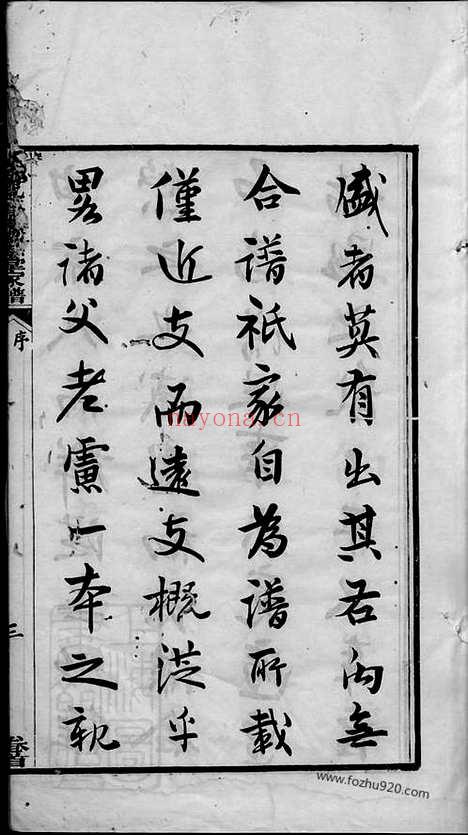 盛者莫有出其右向無
合譜祇家自為譜所載
僅近支而遠支概從乎
畧諸父老慮一本之親
家譜
序
三
nayona.cn
www.fozhu920.com